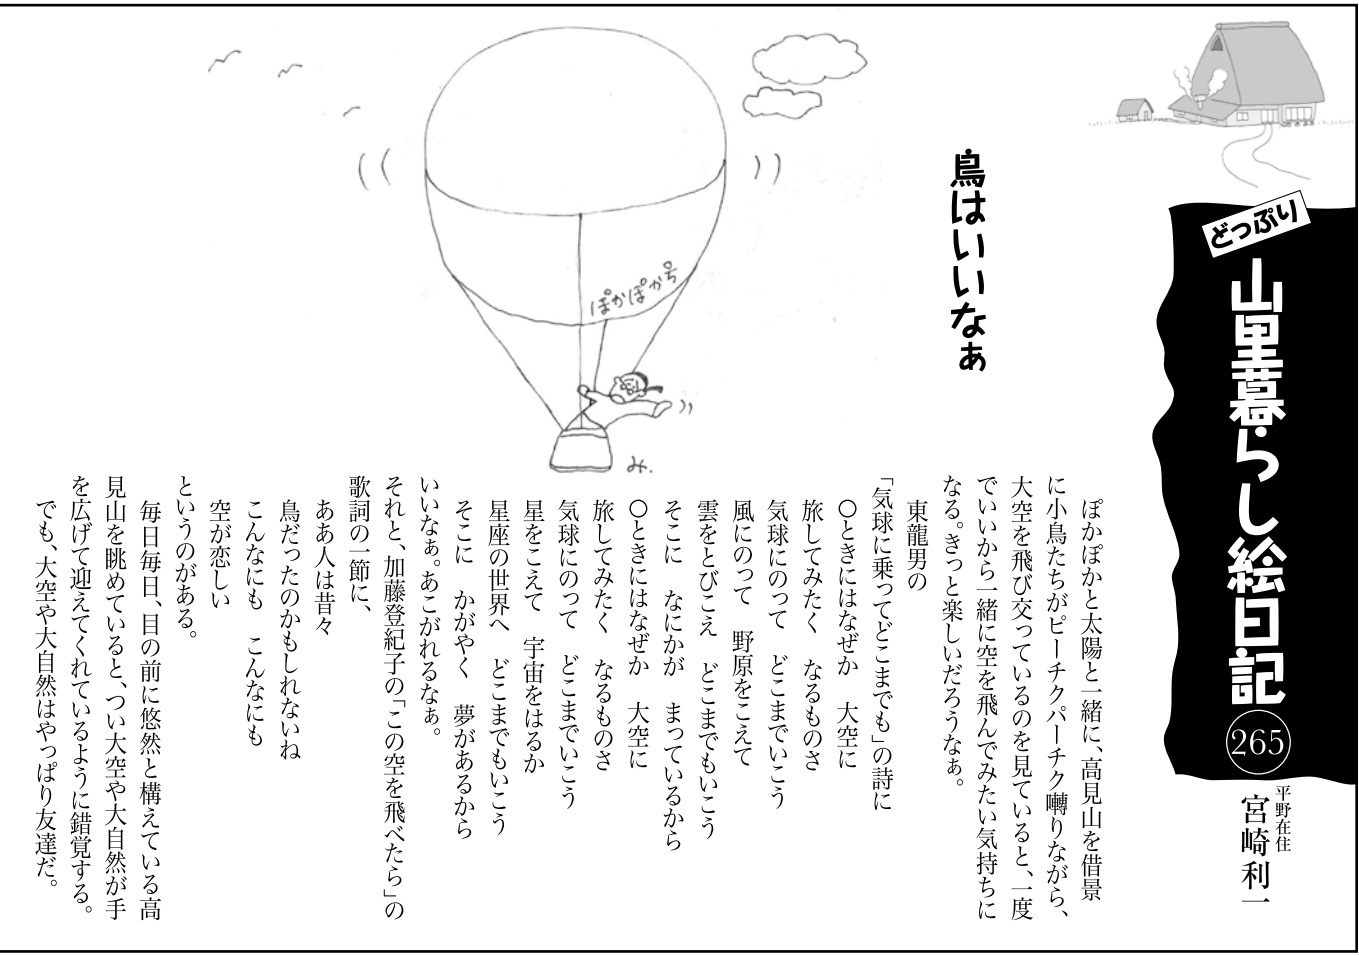 どっぷり
山里暮らし絵日記
265
平野在住
宮崎利一
鳥はいいなぁ
ぽかぽか号
み.
ぽかぽかと太陽と一緒に、高見山を借景
に小鳥たちがピーチクパーチク囀りながら、
大空を飛び交っているのを見ていると、一度
でいいから一緒に空を飛んでみたい気持ちに
なる。きっと楽しいだろうなぁ。
東龍男の
「気球に乗ってどこまでも」の詩に
〇ときにはなぜか　大空に
旅してみたく　なるものさ
気球にのって　どこまでいこう
風にのって　野原をこえて
雲をとびこえ　どこまでもいこう
そこに　なにかが　まっているから
〇ときにはなぜか　大空に
旅してみたく　なるものさ
気球にのって　どこまでいこう
星をこえて　宇宙をはるか
星座の世界へ　どこまでもいこう
そこに　かがやく　夢があるから
いいなぁ。あこがれるなぁ。
それと、加藤登紀子の「この空を飛べたら」の
歌詞の一節に、
ああ人は昔々
鳥だったのかもしれないね
こんなにも　こんなにも
空が恋しい
というのがある。
毎日毎日、目の前に悠然と構えている高
見山を眺めていると、つい大空や大自然が手
を広げて迎えてくれているように錯覚する。
でも、大空や大自然はやっぱり友達だ。